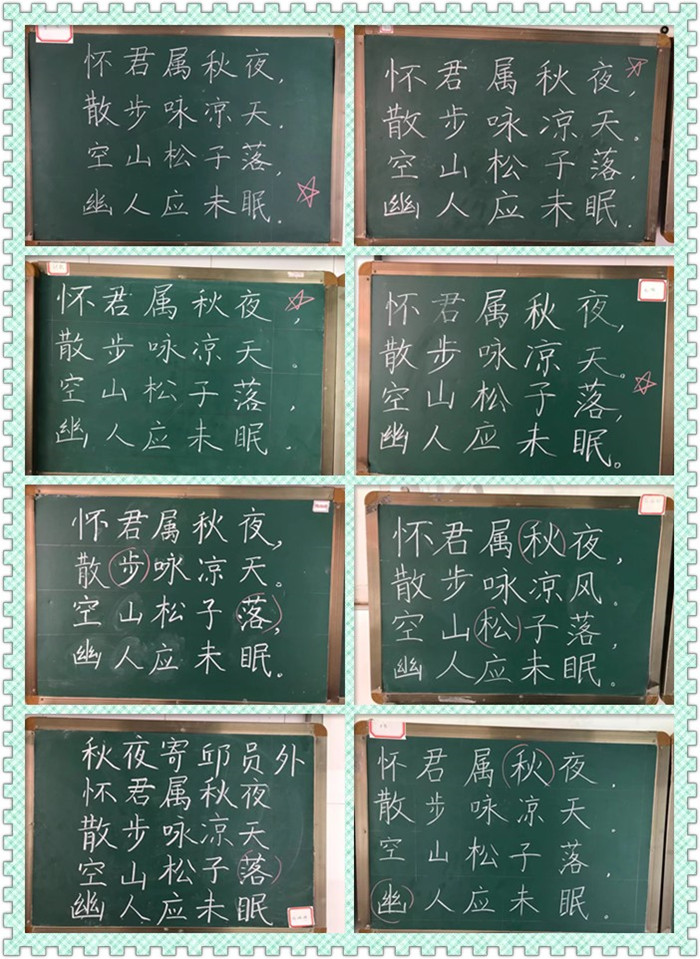 怀君属秋夜，
散步咏凉天。
空山松子落，
幽人应未眠。
怀君属秋夜，
散步咏凉天。
空山松子落，
幽人应未眠。
怀君属秋夜，
散步咏凉天。
空山松子落，
幽人应未眠.
怀君属秋夜，
散步咏凉天。
空山松子落，
幽人应未眠。
怀君属秋夜，
散步咏凉天。
空山松子落，
幽人应未眠。
怀君属秋夜，
散步咏凉风。
空山松子落，
幽人应未眠。
秋夜寄邱员外
怀君属秋夜
散步咏凉天
空山松子落
幽人应未眠
怀君属秋夜，
散步咏凉天.
空山松子落，
幽人应未眠。